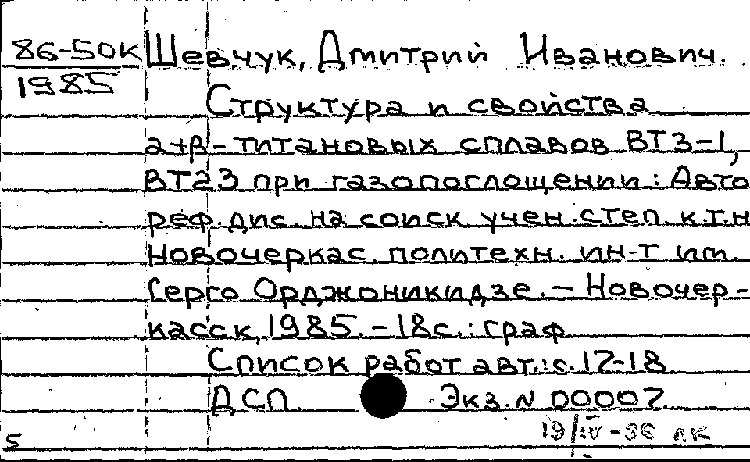 86-50к Шевчук, Дмитрий Иванович.
1985
Структура и свойства
α+β-титановых сплавов ВТ3-1,
ВТ23 при газопоглощении: Авто
реф. дис. на соиск учен. степ. к.т.н
Новочеркас. политехн. ин-т им.
Серго Орджоникидзе. - Новочер-
касск, 1985. - 18с.: граф
Список работ авт.: с. 17-18
ДСП Экз. N 00007
19/IV-86
5